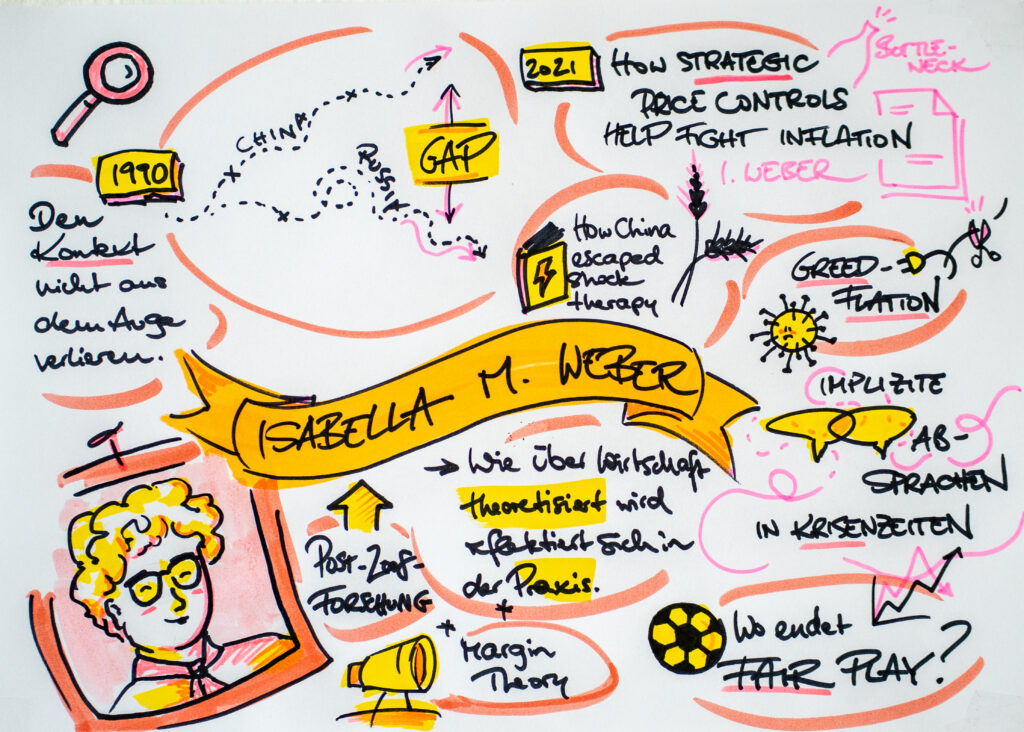 1990
CHINA
RUSSIA
GAP
Den
Kontext
nicht aus
dem Auge
verlieren.
2021
HOW STRATEGIC
PRICE CONTROLS
HELP FIGHT INFLATION
I. WEBER
BOTTLE-
NECK
How China
escaped
shock
therapy
GREED-
FLATION
ISABELLA M. WEBER
IMPLIZITE
AB-
SPRACHEN
IN KRISENZEITEN
→ Wie über Wirtschaft
theoretisiert wird
reflektiert sich in
der Praxis.
POST-
FORSCHUNG
* Margin
Theory
Wo endet
FAIR PLAY?